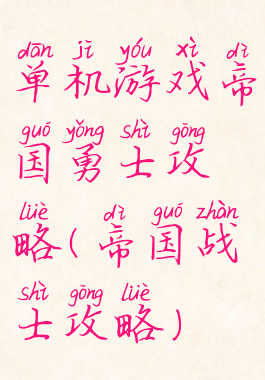 dān jī yóu xì dì
单机游戏帝
guó yǒng shì gōng
国勇士攻
lüè dì guó zhàn
略(帝国战
shì gōng lüè
士攻略)